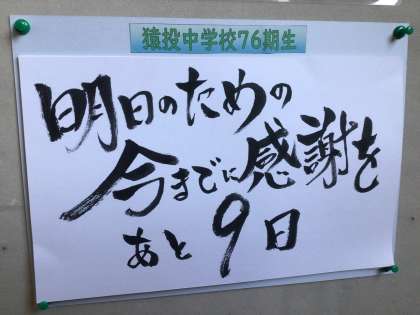 猿投中学校76期生
明日のための
今までに感謝を
あと9日